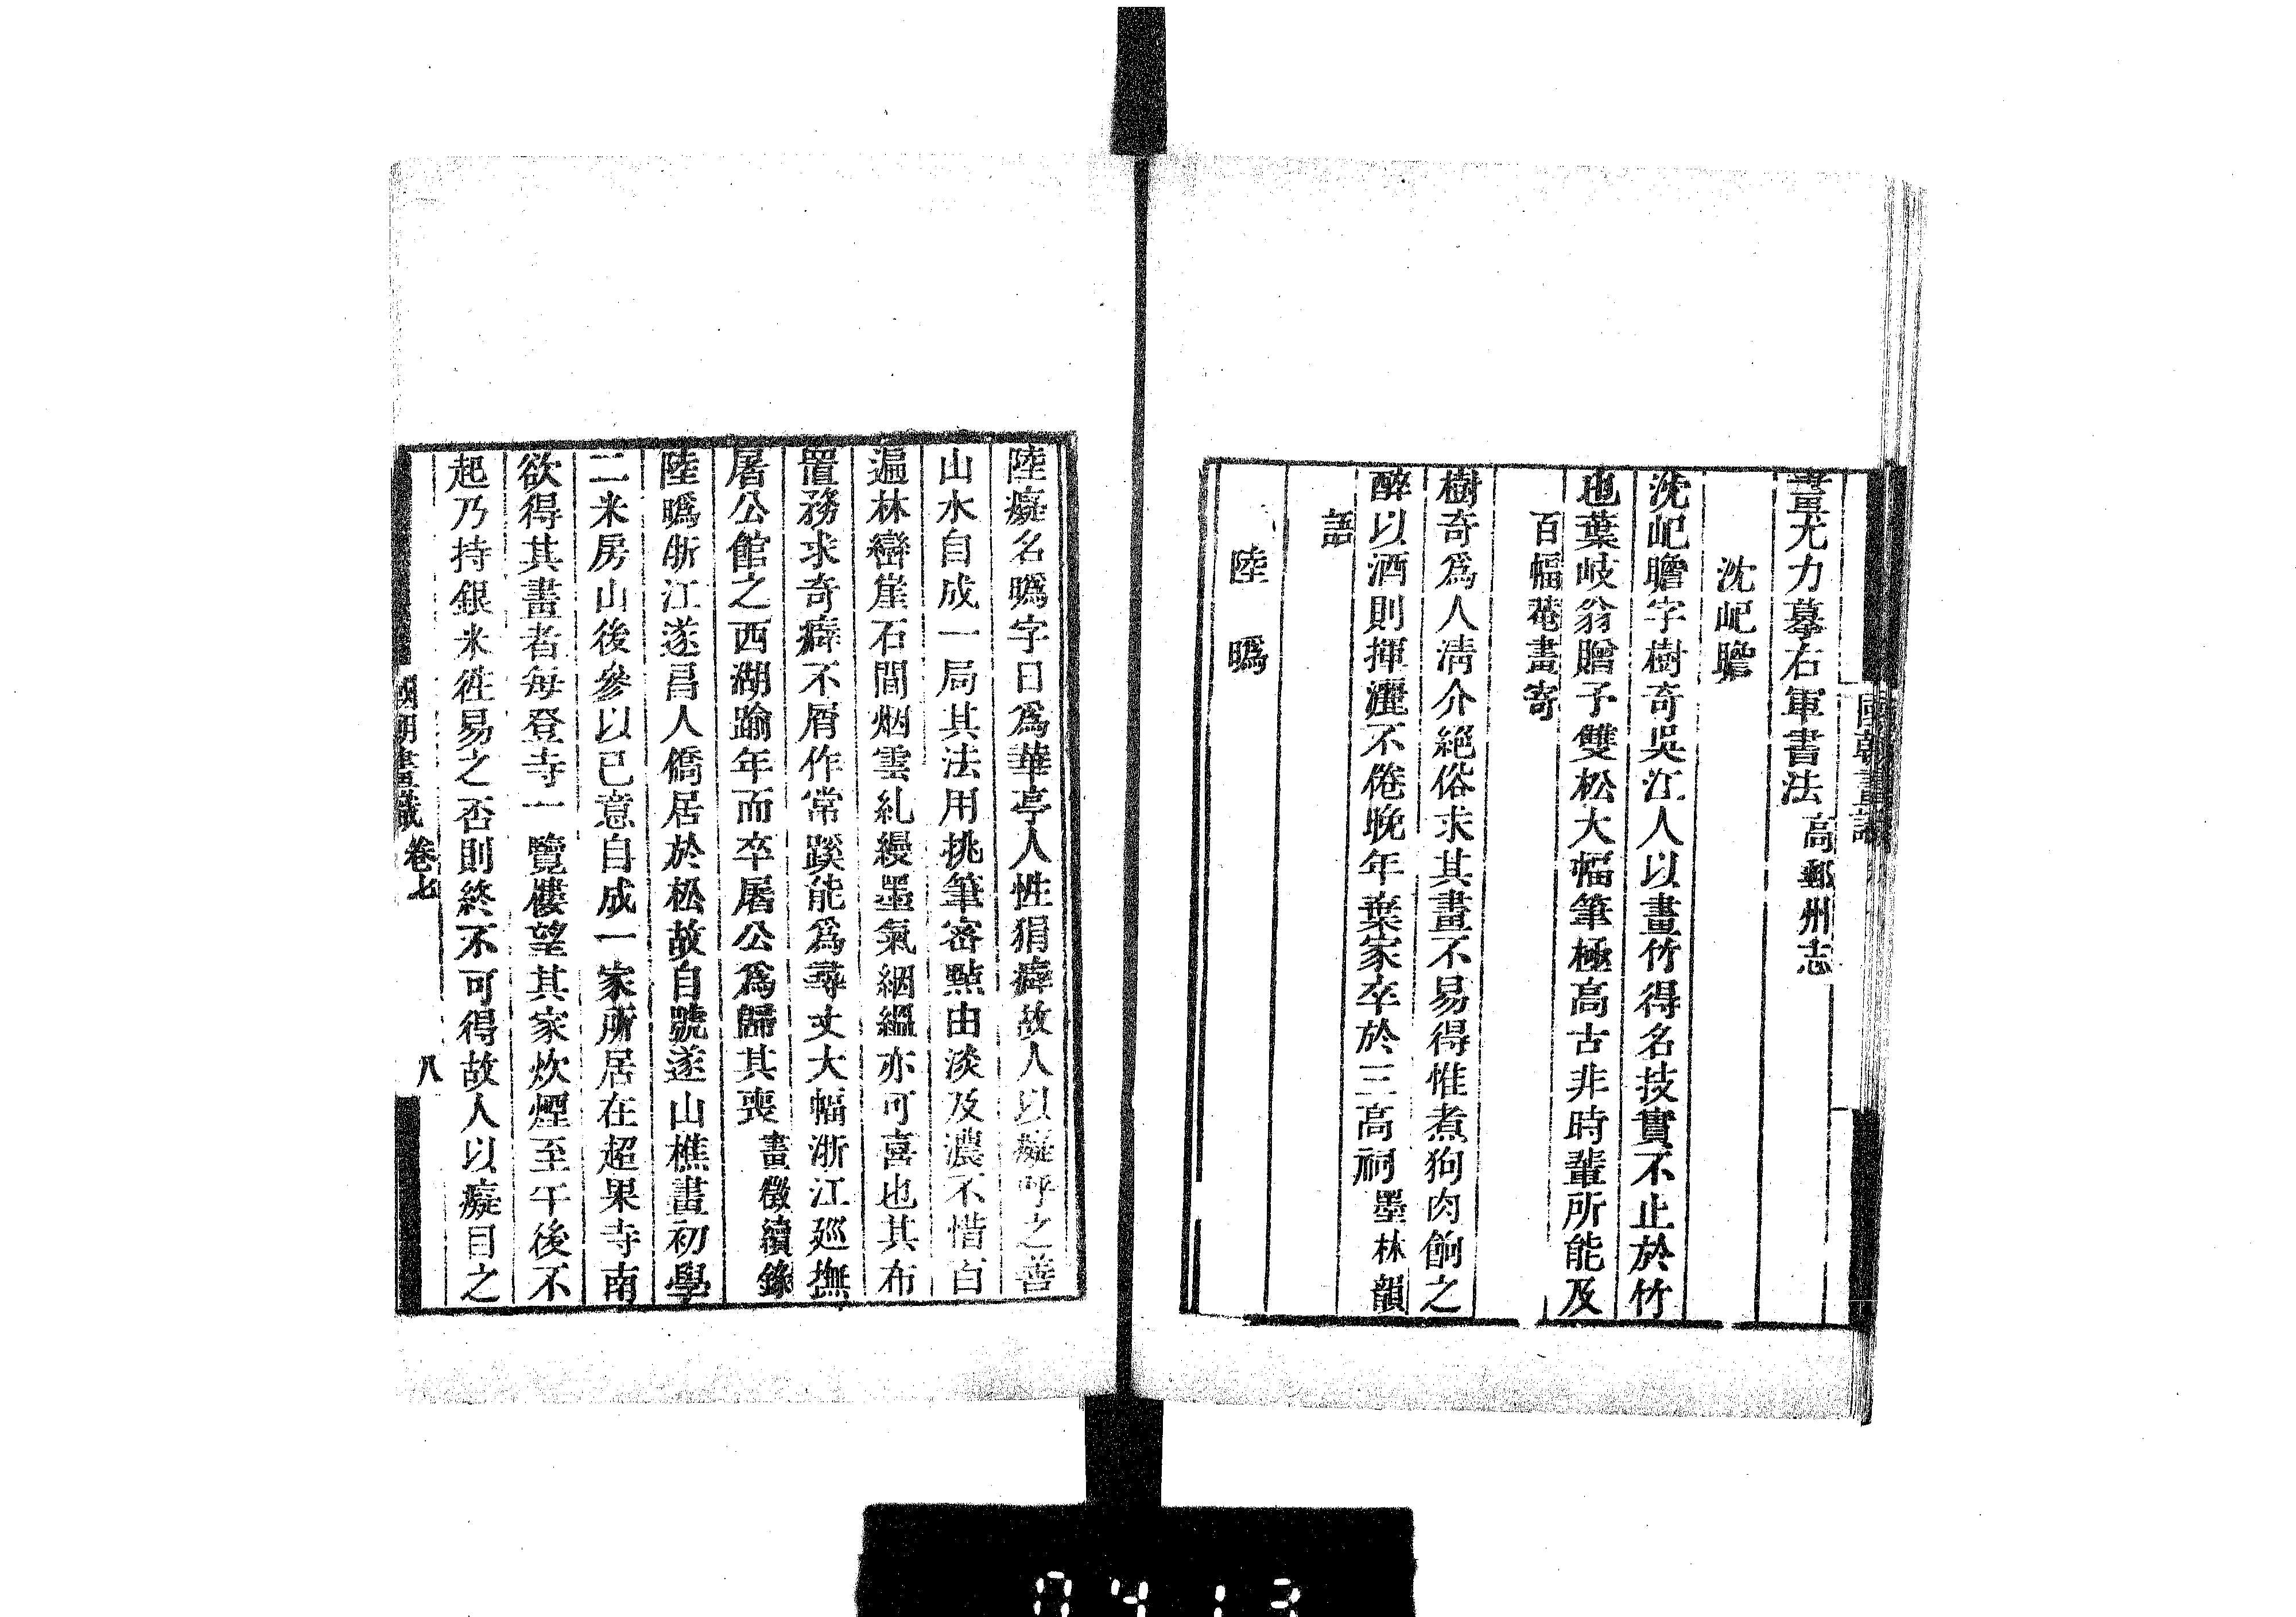 畫尤力摹右軍書法高郵州志
沈屺瞻
沈屺瞻字樹奇吳江人以畫竹得名技實不止於竹
也葉岐翁贈予雙松大幅筆極高古非時輩所能及
百幅菴畫寄
樹奇爲人清介絕俗求其畫不易得惟煮狗肉餉之
醉以酒則揮灑不倦晚年棄家卒於三高祠墨林韻
語
陸㬙
陸癡名㬙字日爲華亭人性狷癖故人以癡呼之善
山水自成一局其法用挑筆密點由淡及濃不惜百
遍林巒崖石間烟雲糺縵墨氣絪縕亦可喜也其布
置務求奇癖不屑作常蹊能爲尋丈大幅浙江廵撫
屠公館之西湖踰年而卒屠公爲歸其喪畫徵續錄
陸㬙浙江遂昌人僑居於松故自號遂山樵畫初學
二米房山後參以已意自成一家所居在超果寺南
欲得其畫者每登寺一覽樓望其家炊煙至午後不
起乃持銀米徃易之否則終不可得故人以癡目之
國朝畫識 卷七 八